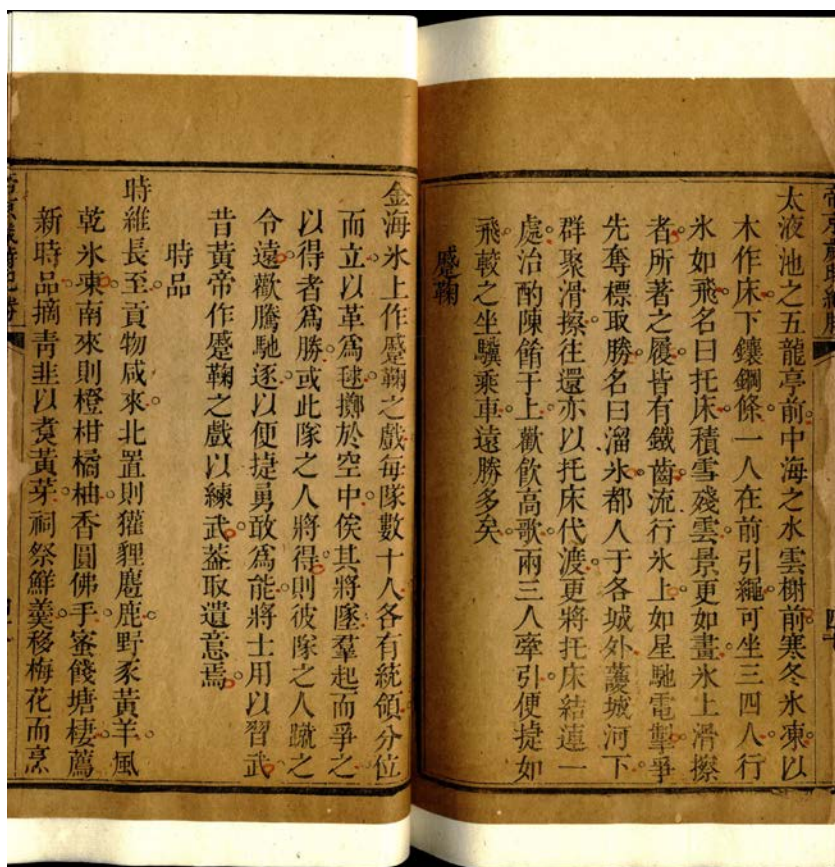 太液池之五龍亭前中海之水雲榭前寒冬氷凍以
木作床下鑲鋼條一人在前引繩可坐三四人行
氷如飛名曰托床積雪殘雲景更如畫氷上滑擦
者所著之履皆有鐵齒流行氷上如星馳電掣爭
先奪標取勝名曰溜氷都人于各城外護城河下
群聚滑擦往還亦以托床代渡更將托床結連一
處治酌陳餚于上歡飲高歌兩三人牽引便捷如
飛較之坐驥乘車遠勝多矣
蹙鞠
金海氷上作蹙鞠之戲每隊數十人各有統領分位
而立以革爲毬擲於空中俟其將墜羣起而爭之
以得者爲勝或此隊之人將得則彼隊之人蹴之
令遠歡騰馳逐以便捷勇敢爲能將士用以習武
昔黃帝作蹙鞠之戲以練武葢取遺意焉
時品
時維長至貢物咸來北置則獾貍麅鹿野豕黃羊風
乾氷凍南來則橙柑橘柚香圓佛手蜜餞塘棲薦
新時品摘青韭以煑黃芽祠祭鮮羹移梅花而烹